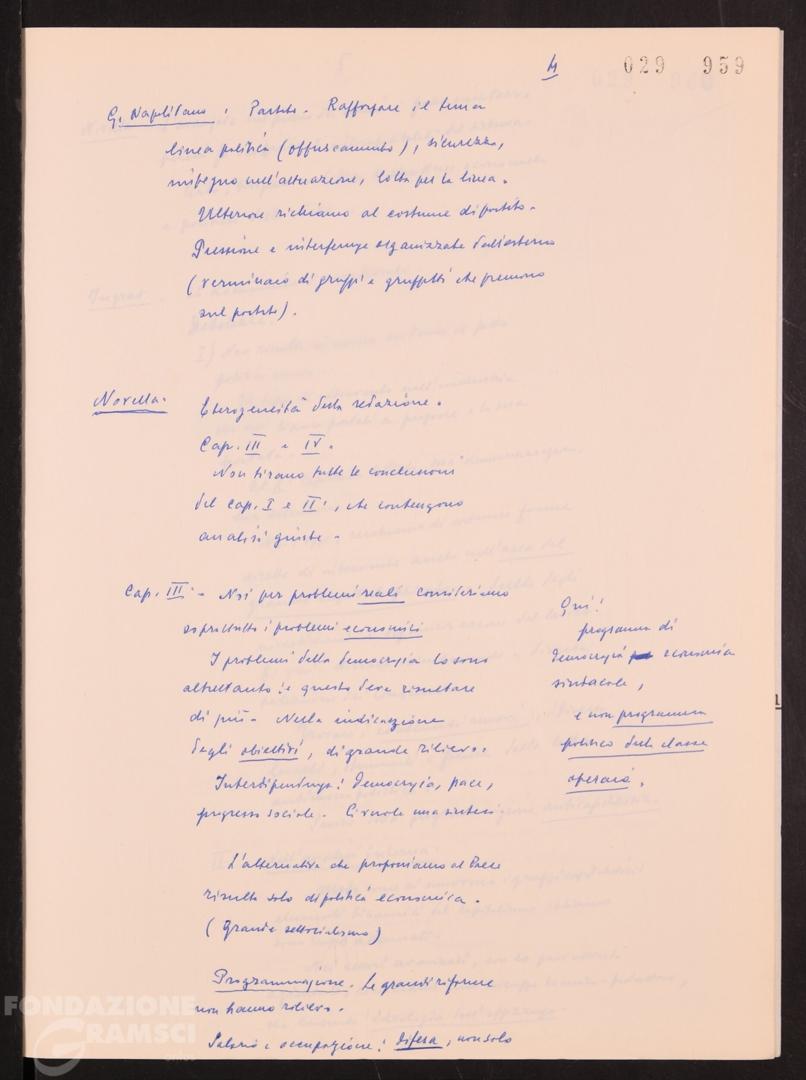 4 029 959
G. Napolitano: Partito. Rafforzare il tema
linea politica (offuscamento), sicurezza,
impegno nell'attuazione, lotta per la linea.
Ulteriore richiamo al costume di partito.
Pressione e interferenze organizzate dall'esterno
(verminaio di gruppi e gruppetti che premono
sul partito).
Novella. Eterogeneità della redazione.
Cap. III e IV.
Non tirano tutte le conclusioni
del cap. I e II, che contengono
analisi giuste.
Cap. III - Noi per problemi reali consideriamo
soprattutto i problemi economici
I problemi della democrazia lo sono
altrettanto: e questo deve risultare
di più. Nella indicazione
degli obiettivi, di grande rilievo.
Interdipendenza: democrazia, pace,
progresso sociale. Ci vuole una sintesi
Qui:
programma di
democrazia economia
sindacale,
e non programma
politico della classe
operaia.
L'alternativa che proponiamo al Paese
risulta solo di politica economica.
(Grande settorialismo)
Programmazione. Le grandi riforme
non hanno rilievo.
Salario e occupazione: difesa, non solo
FONDAZIONE
GRAMSCI
onlus